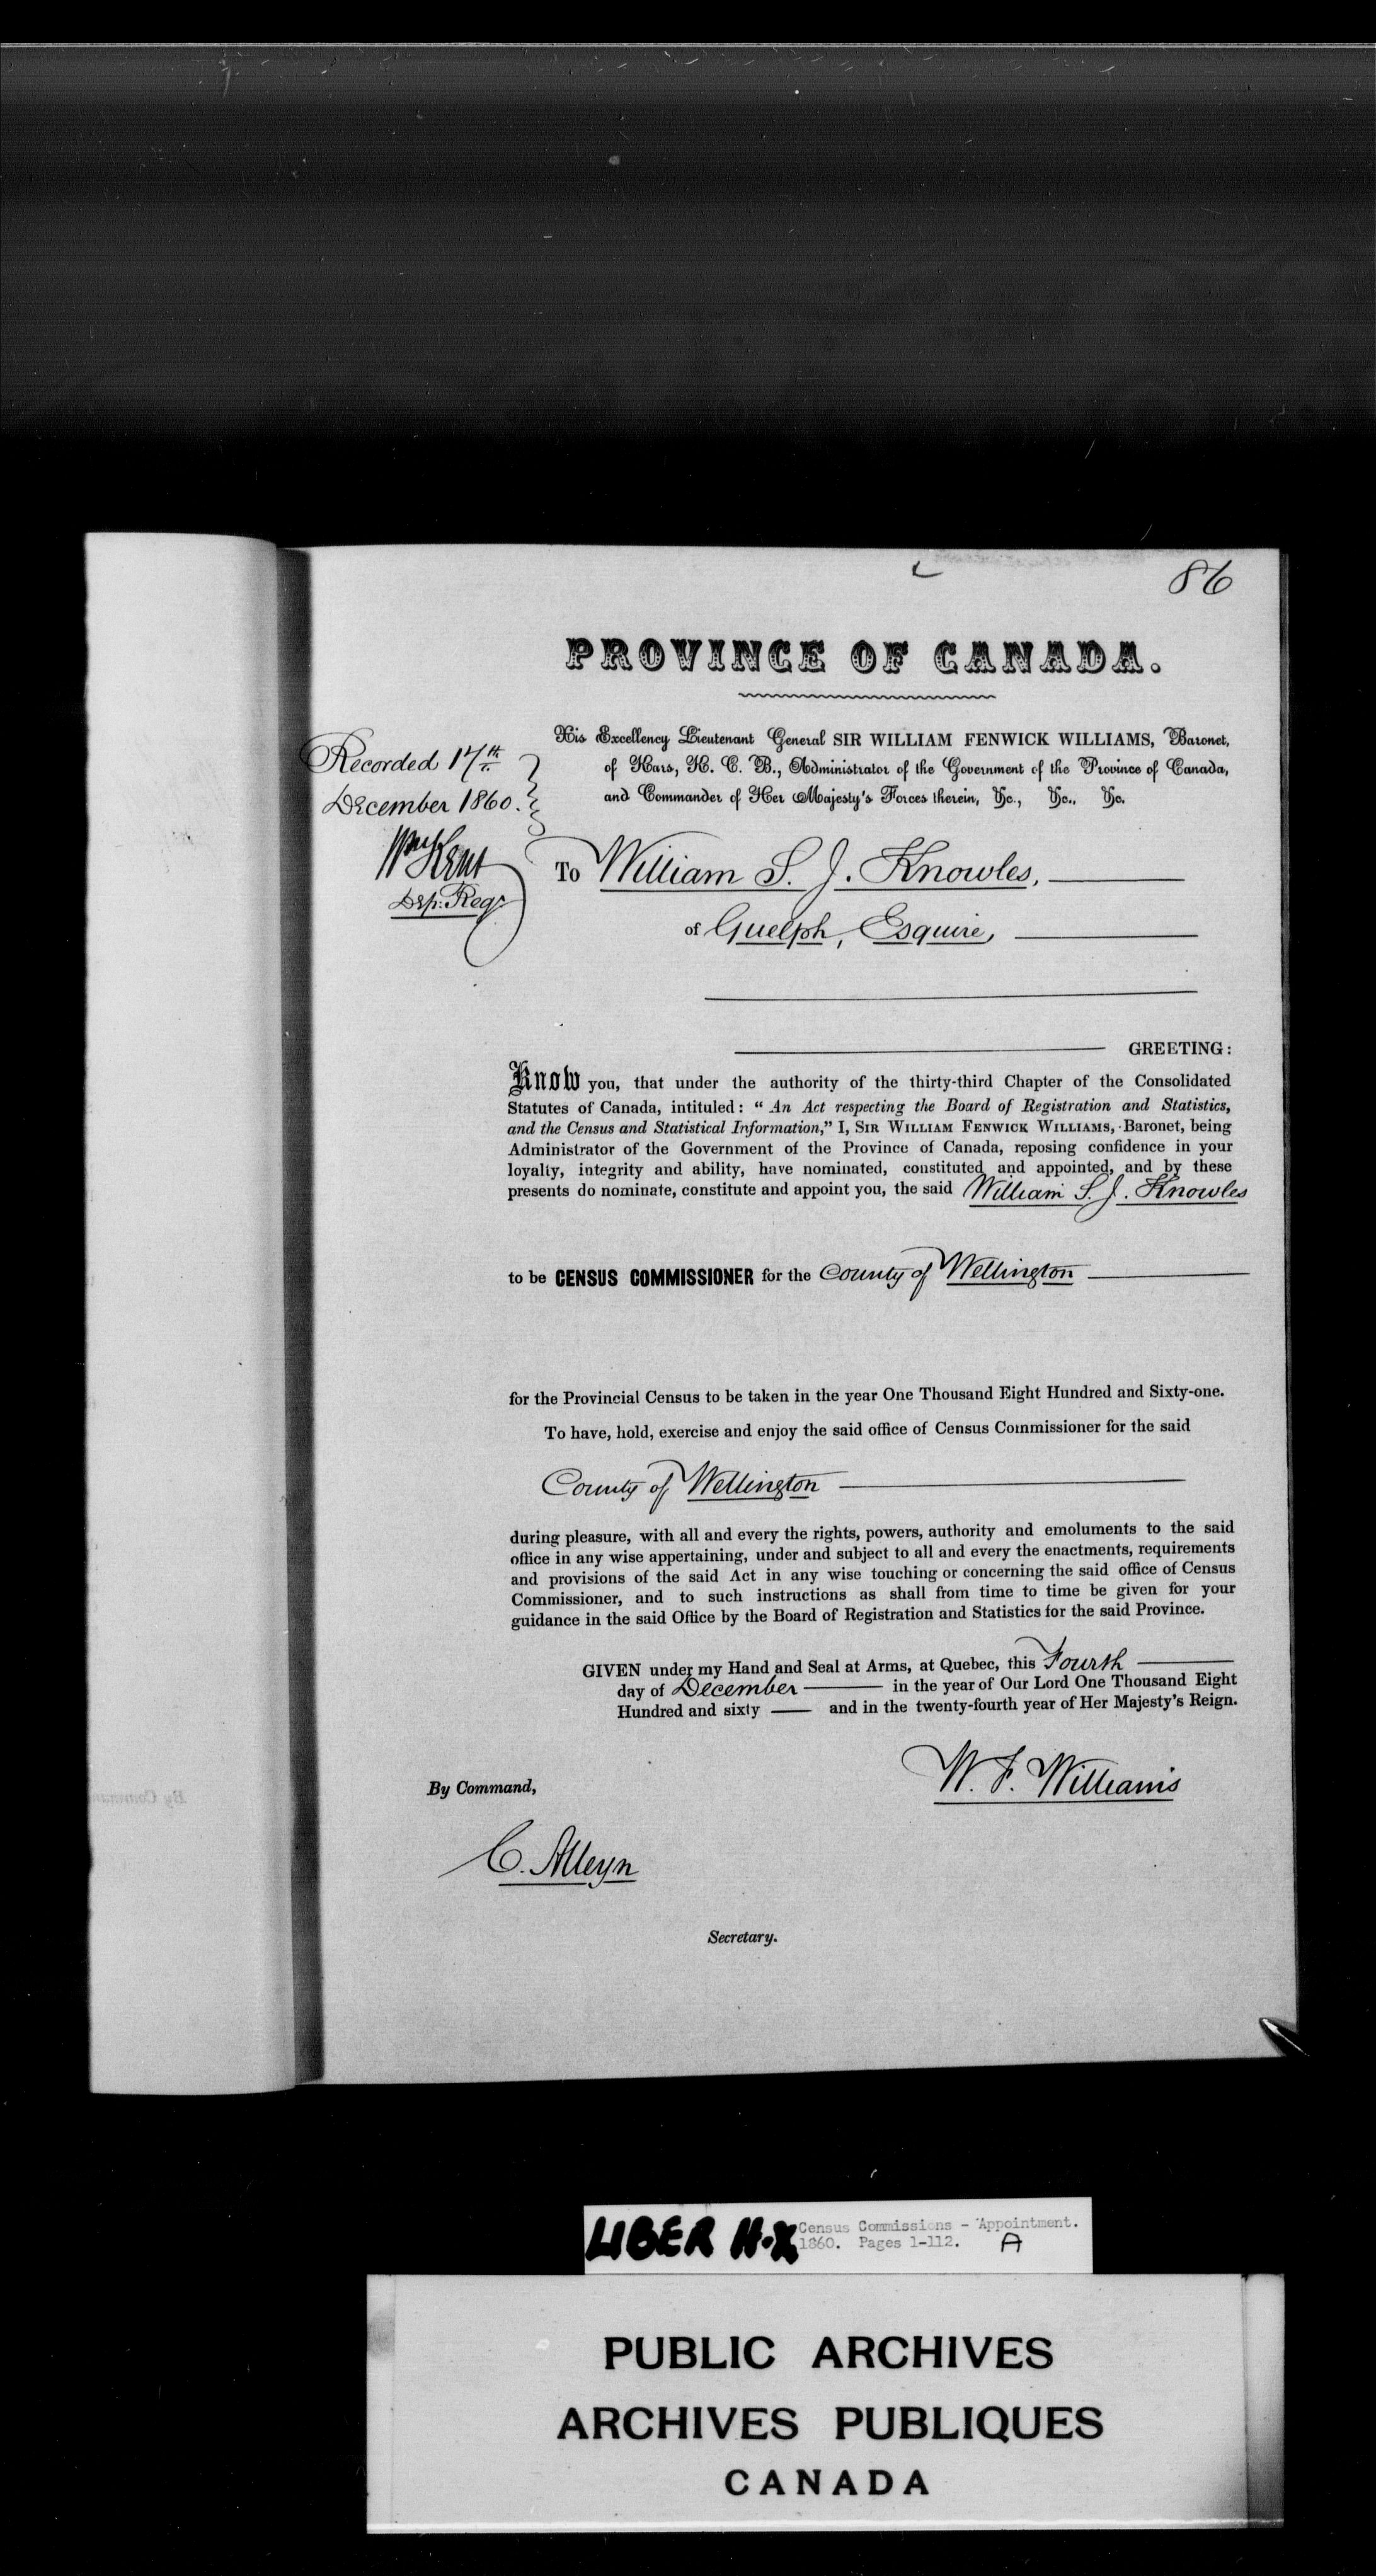 86
PROVINCE OF CANADA.
His Excellency Lieutenant General SIR WILLIAM FENWICK WILLIAMS, Baronet,
of Kars, K. C. B., Administrator of the Government of the Province of Canada,
and Commander of Her Majesty's Forces therein, &c., &c., &c.
Recorded 17th
December 1860.
Wm Kent
Dep: Regr
To William S. J. Knowles,
of Guelph, Esquire,
GREETING:
Know you, that under the authority of the thirty-third Chapter of the Consolidated
Statutes of Canada, intituled: “ An Act respecting the Board of Registration and Statistics,
and the Census and Statistical Information,” I, SIR WILLIAM FENWICK WILLIAMS, Baronet, being
Administrator of the Government of the Province of Canada, reposing confidence in your
loyalty, integrity and ability, have nominated, constituted and appointed, and by these
presents do nominate, constitute and appoint you, the said William S. J. Knowles
to be CENSUS COMMISSIONER for the County of Wellington
for the Provincial Census to be taken in the year One Thousand Eight Hundred and Sixty-one.
To have, hold, exercise and enjoy the said office of Census Commissioner for the said
County of Wellington
during pleasure, with all and every the rights, powers, authority and emoluments to the said
office in any wise appertaining, under and subject to all and every the enactments, requirements
and provisions of the said Act in any wise touching or concerning the said office of Census
Commissioner, and to such instructions as shall from time to time be given for your
guidance in the said Office by the Board of Registration and Statistics for the said Province.
GIVEN under my Hand and Seal at Arms, at Quebec, this Fourth
day of December in the year of Our Lord One Thousand Eight
Hundred and sixty and in the twenty-fourth year of Her Majesty's Reign.
W. F. Williams
By Command,
C. Alleyn
Secretary.
LIBER H.X Census Commissions - Appointment.
1860. Pages 1-112. A
PUBLIC ARCHIVES
ARCHIVES PUBLIQUES
CANADA